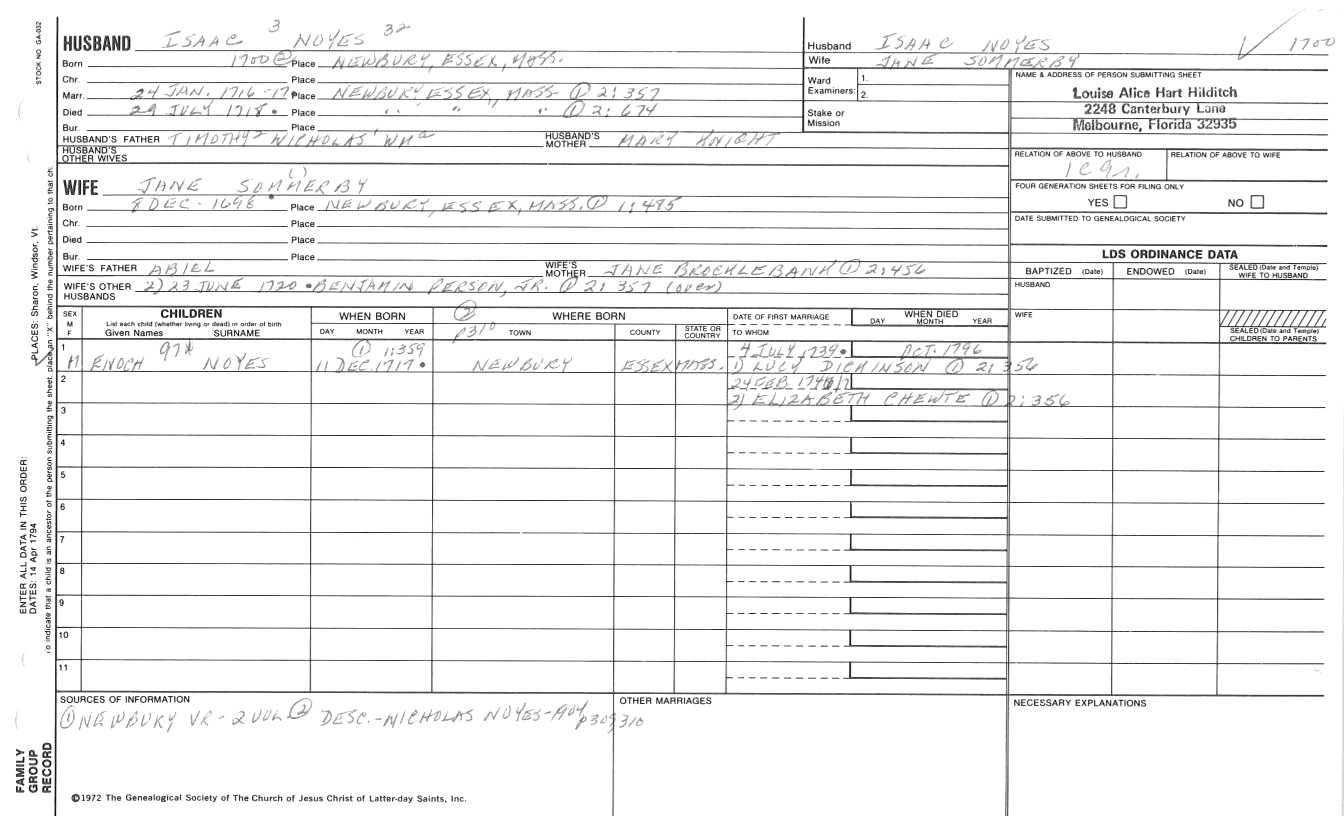 STOCK NO. GA-032
HUSBAND ISAAC 3 NOYES 32
Born 1700 ② Place NEWBURY, ESSEX, MASS.
Chr. Place
Marr. 24 JAN. 1716-17 Place NEWBURY, ESSEX, MASS. ① 2:357
Died 29 JULY 1718. Place " " " ① 2:674
Bur. Place
HUSBAND'S FATHER TIMOTHY² NICHOLAS' HUSBAND'S MOTHER MARY KNIGHT
HUSBAND'S OTHER WIVES
Husband ISAAC NOYES
Wife JANE SOMMERBY
Ward Examiners: 1.
2.
Stake or Mission
1700
NAME & ADDRESS OF PERSON SUBMITTING SHEET
Louise Alice Hart Hilditch
2248 Canterbury Lane
Melbourne, Florida 32935
RELATION OF ABOVE TO HUSBAND RELATION OF ABOVE TO WIFE
FOUR GENERATION SHEETS FOR FILING ONLY
YES NO
DATE SUBMITTED TO GENEALOGICAL SOCIETY
WIFE JANE SOMMERBY
Born 8 DEC. 1698 Place NEWBURY, ESSEX, MASS. ① 1:485
Chr. Place
Died Place
Bur. Place
WIFE'S FATHER ABIEL WIFE'S MOTHER JANE BROCKLEBANK ① 2:456
WIFE'S OTHER HUSBANDS 2) 23 JUNE 1720 • BENJAMIN PERSON, JR. ① 2:357 (over)
LDS ORDINANCE DATA
BAPTIZED (Date) ENDOWED (Date) SEALED (Date and Temple) WIFE TO HUSBAND
HUSBAND
WIFE
SEALED (Date and Temple) CHILDREN TO PARENTS
SEX M F CHILDREN List each child (whether living or dead) in order of birth Given Names SURNAME WHEN BORN DAY MONTH YEAR ② p310 WHERE BORN TOWN COUNTY STATE OR COUNTRY DATE OF FIRST MARRIAGE TO WHOM WHEN DIED DAY MONTH YEAR
1 97* ① 1:359 4 JULY, 1739. OCT. 1796
M ENOCH NOYES 11 DEC. 1717. NEWBURY ESSEX MASS. 1) LUCY DICKINSON ① 2:356
2 24 FEB
2) ELIZABETH CHEWTE ① 2:356
3
4
5
6
7
8
9
10
11
SOURCES OF INFORMATION
① NEWBURY VR - 2 VOL ② DESC.-NICHOLAS NOYES-1904 p309, 310
OTHER MARRIAGES
NECESSARY EXPLANATIONS
©1972 The Genealogical Society of The Church of Jesus Christ of Latter-day Saints, Inc.
FAMILY GROUP RECORD
ENTER ALL DATA IN THIS ORDER:
DATES: 14 Apr 1794
PLACES: Sharon, Windsor, Vt.
To indicate that a child is an ancestor of the person submitting the sheet, place an "X" behind the number pertaining to that ch